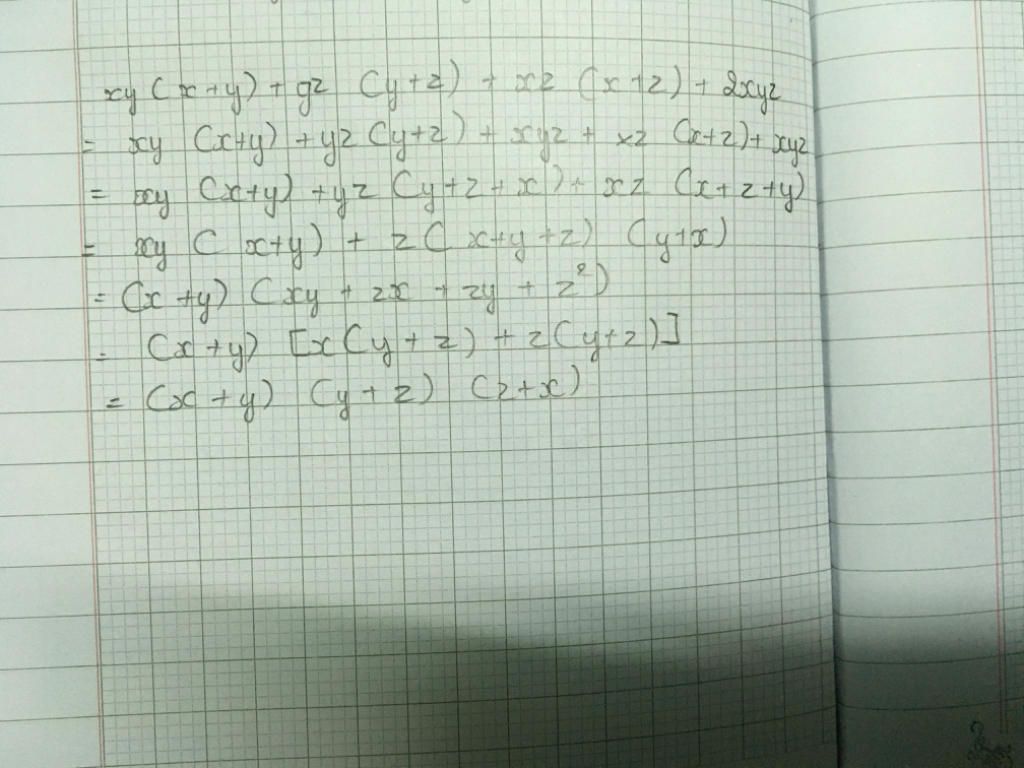 xy (x+y) + yz (y+z) + xz (x+z) + 2xyz
= xy (x+y) + yz (y+z) + xyz + xz (x+z) + xyz
= xy (x+y) + yz (y+z+x) + xz (x+z+y)
= xy (x+y) + z (x+y+z) (y+x)
= (x+y) (xy + zx + zy + z²)
= (x+y) [x(y+z) + z(y+z)]
= (x+y) (y+z) (z+x)